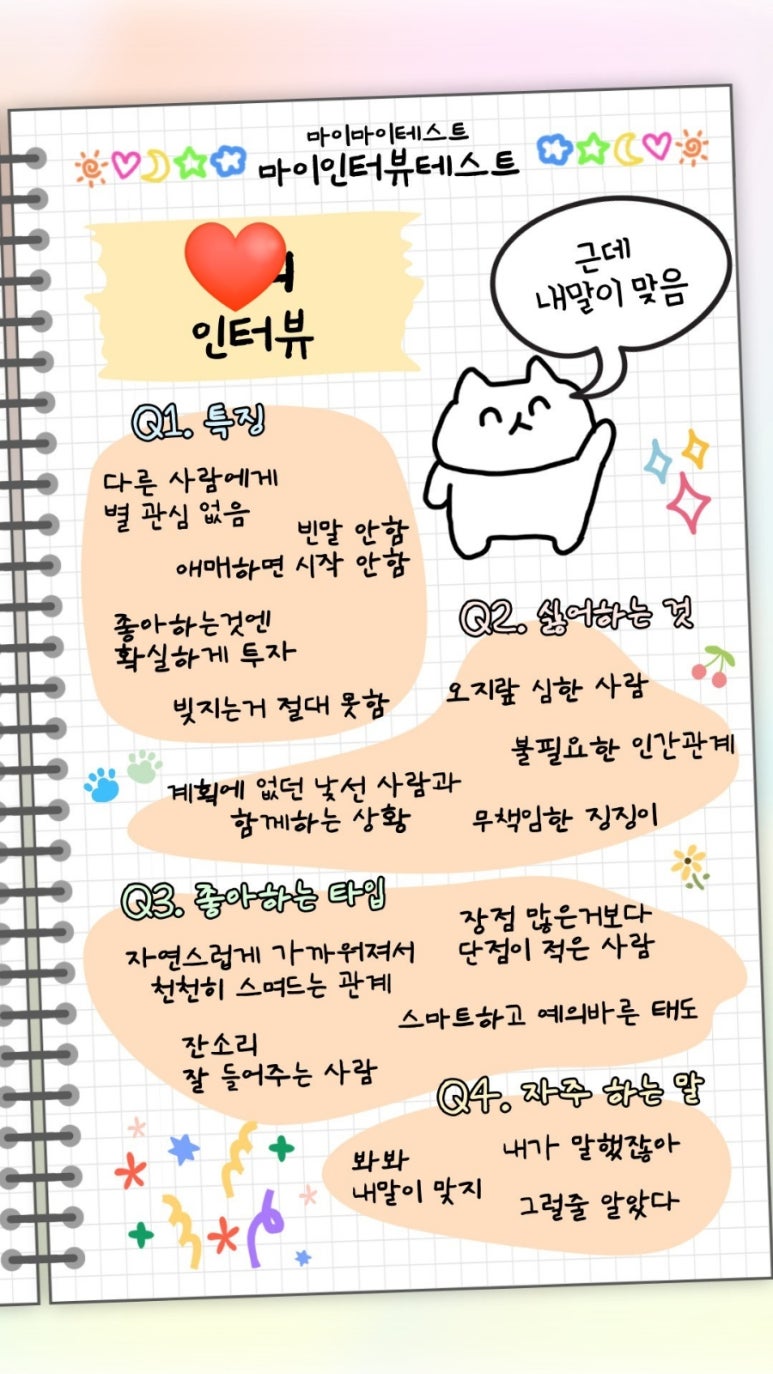 마이마이테스트
마이인터뷰테스트
인터뷰
근데
내말이 맞음
Q1. 특징
다른 사람에게
별 관심 없음
빈말 안함
애매하면 시작 안함
좋아하는것엔
확실하게 투자
빚지는거 절대 못함
Q2. 싫어하는 것
오지랖 심한 사람
불필요한 인간관계
계획에 없던 낯선 사람과
함께하는 상황
무책임한 징징이
Q3. 좋아하는 타입
자연스럽게 가까워져서
천천히 스며드는 관계
장점 많은거보다
단점이 적은 사람
스마트하고 예의바른 태도
잔소리
잘 들어주는 사람
Q4. 자주 하는 말
봐봐
내말이 맞지
내가 말했잖아
그럴줄 알았다